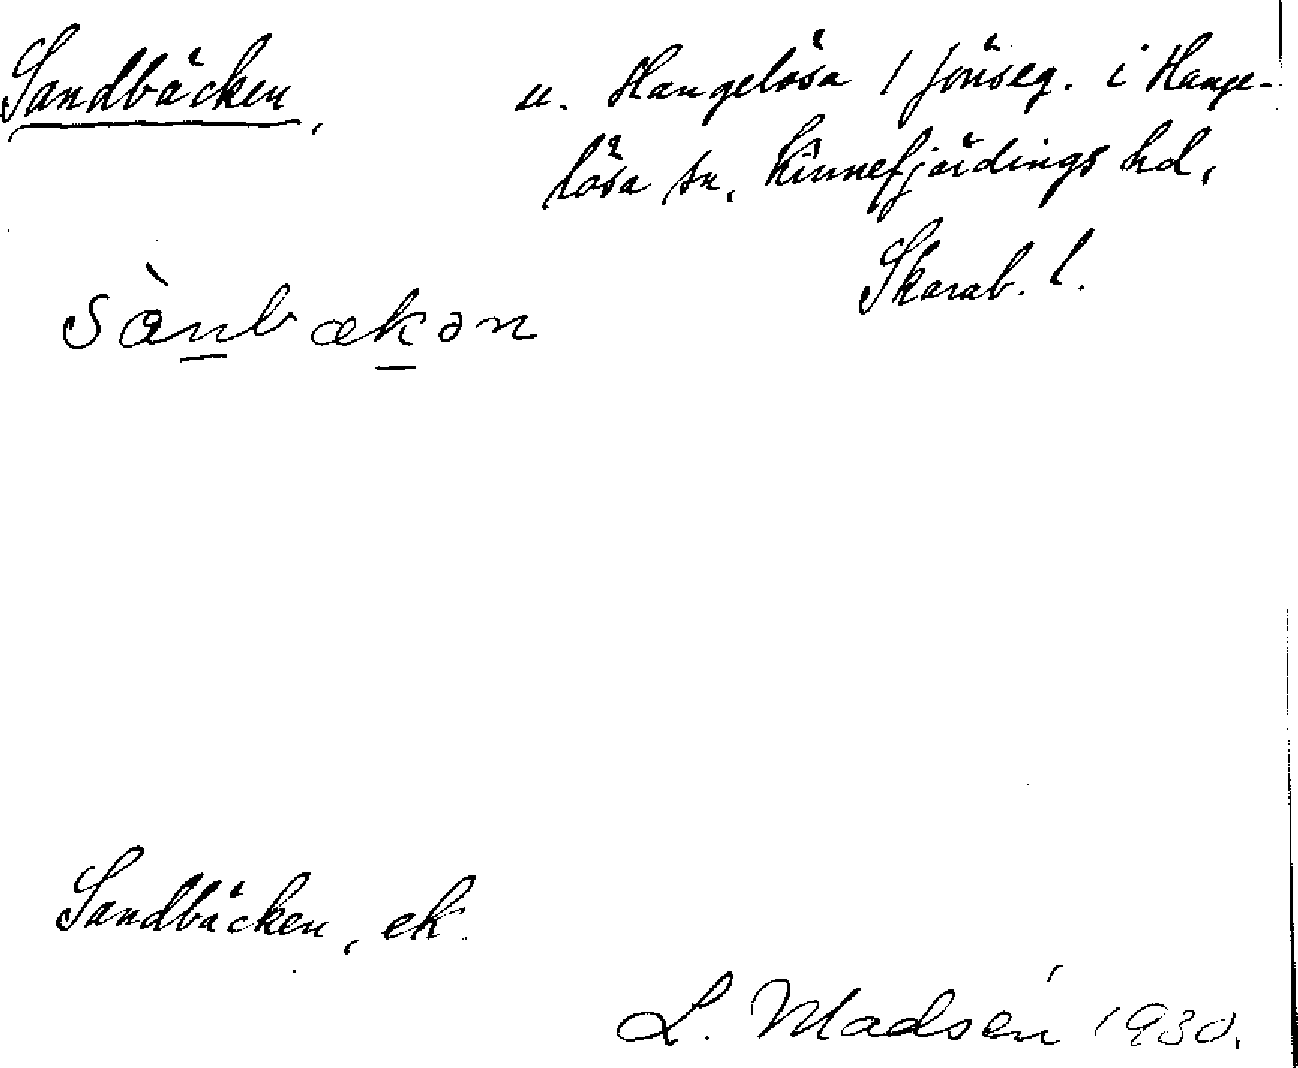 Sandbäcken, u. Hangelösa 1 Jönseg. i Hange-
lösa sn, Kinnefjärdings hd,
Skarab. l.
sànbækən
Sandbäcken, ek.
L. Madsén 1930.